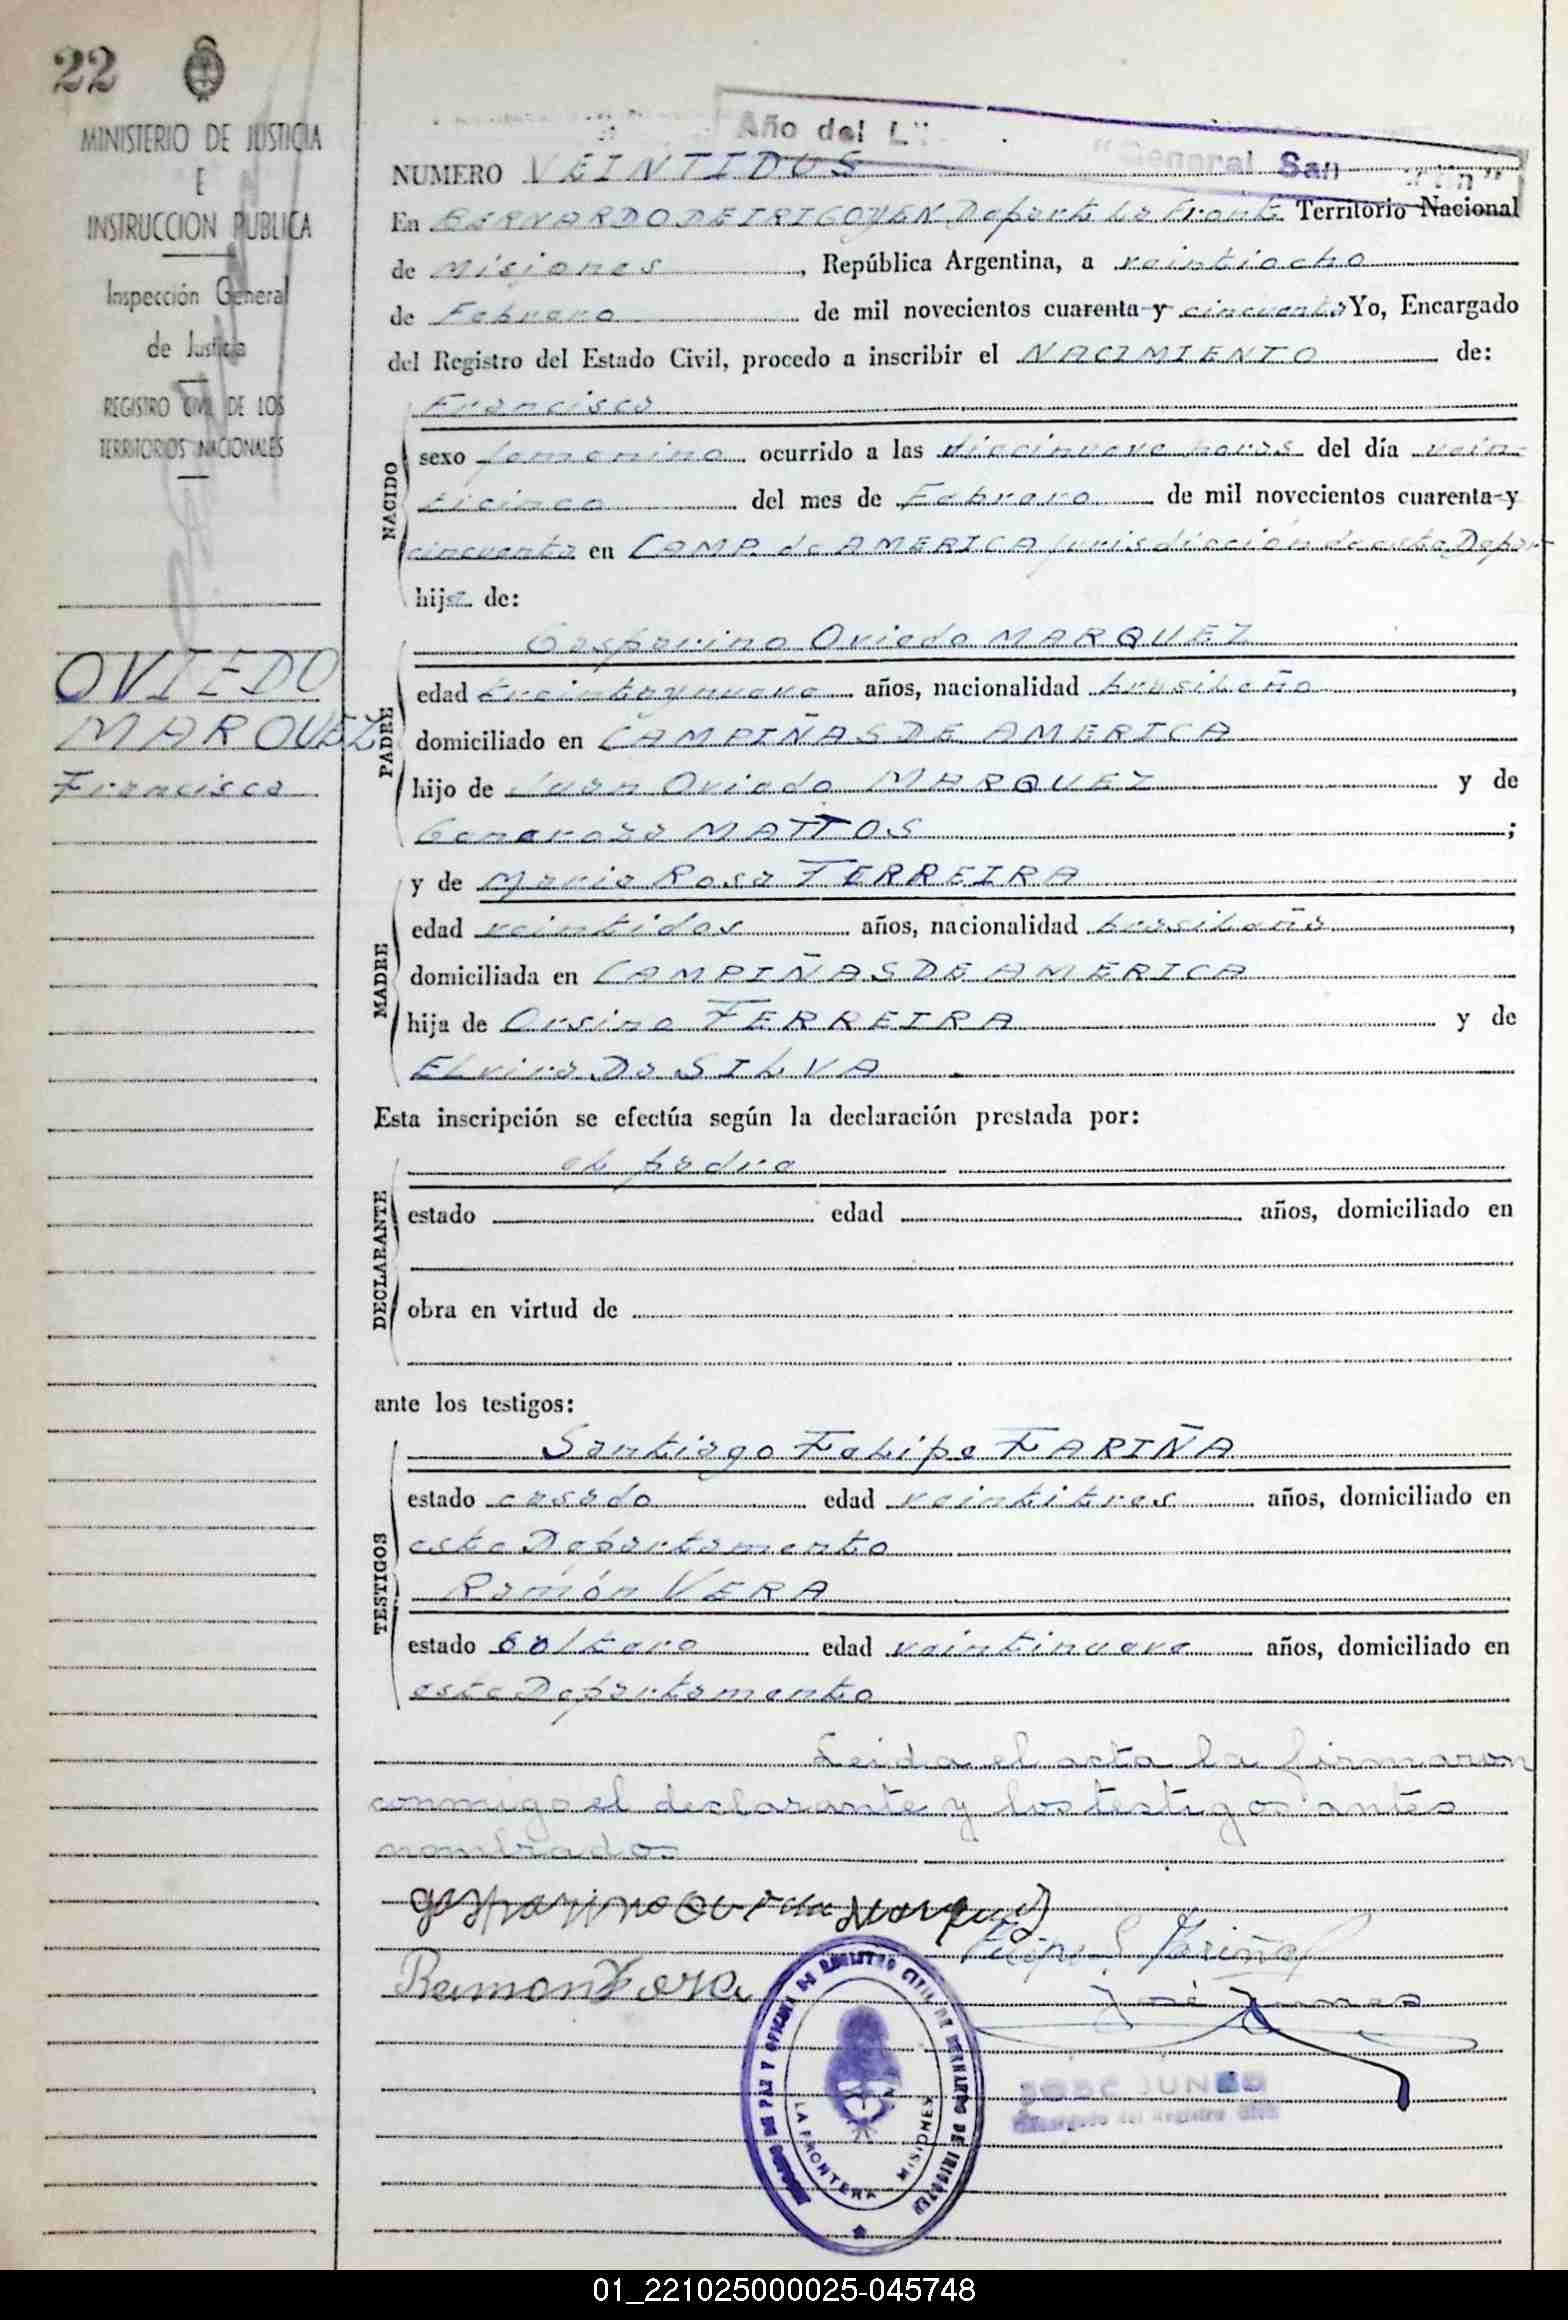 22
MINISTERIO DE JUSTICIA
E
INSTRUCCION PUBLICA
Inspección General
de Justicia
REGISTRO CIVIL DE LOS
TERRITORIOS NACIONALES
OVIEDO
MARQUEZ
Francisca
Año del L
"General San
NUMERO VEINTIDOS
En BERNARDO DE IRIGOYEN Depart. La Front. Territorio Nacional
de Misiones, República Argentina, a veintiocho
de Febrero de mil novecientos cuarenta y cincuenta Yo, Encargado
del Registro del Estado Civil, procedo a inscribir el NACIMIENTO de:
NACIDO
Francisca
sexo femenino ocurrido a las diecinueve horas del día vein-
ticinco del mes de Febrero de mil novecientos cuarenta y
cincuenta en CAMP. de AMERICA jurisdicción de este Depar-
hija de:
PADRE
Gasparino Oviedo MARQUEZ
edad treintaynueve años, nacionalidad brasileño,
domiciliado en CAMPIÑAS DE AMERICA
hijo de Juan Oviedo MARQUEZ y de
Generosa MATTOS;
MADRE
y de Maria Rosa FERREIRA
edad veintidos años, nacionalidad brasileña,
domiciliada en CAMPIÑAS DE AMERICA
hija de Orsino FERREIRA y de
Elvira Da SILVA
Esta inscripción se efectúa según la declaración prestada por:
DECLARANTE
el padre
estado edad años, domiciliado en
obra en virtud de
ante los testigos:
TESTIGOS
Santiago Felipe FARIÑA
estado casado edad veintitres años, domiciliado en
este Departamento
Ramón VERA
estado soltero edad veintinueve años, domiciliado en
este Departamento
Leida el acta la firmaron
conmigo el declarante y los testigos antes
nombrados
Gasparino Oviedo Marquez
Felipe S. Fariña
Ramon Vera
José Juneo
JUZGADO DE PAZ Y OFICINA DE REGISTRO CIVIL DE BERNARDO DE IRIGOYEN
LA FRONTERA MISIONES
JOSE JUNEO
Encargado del Registro Civil
01_221025000025-045748